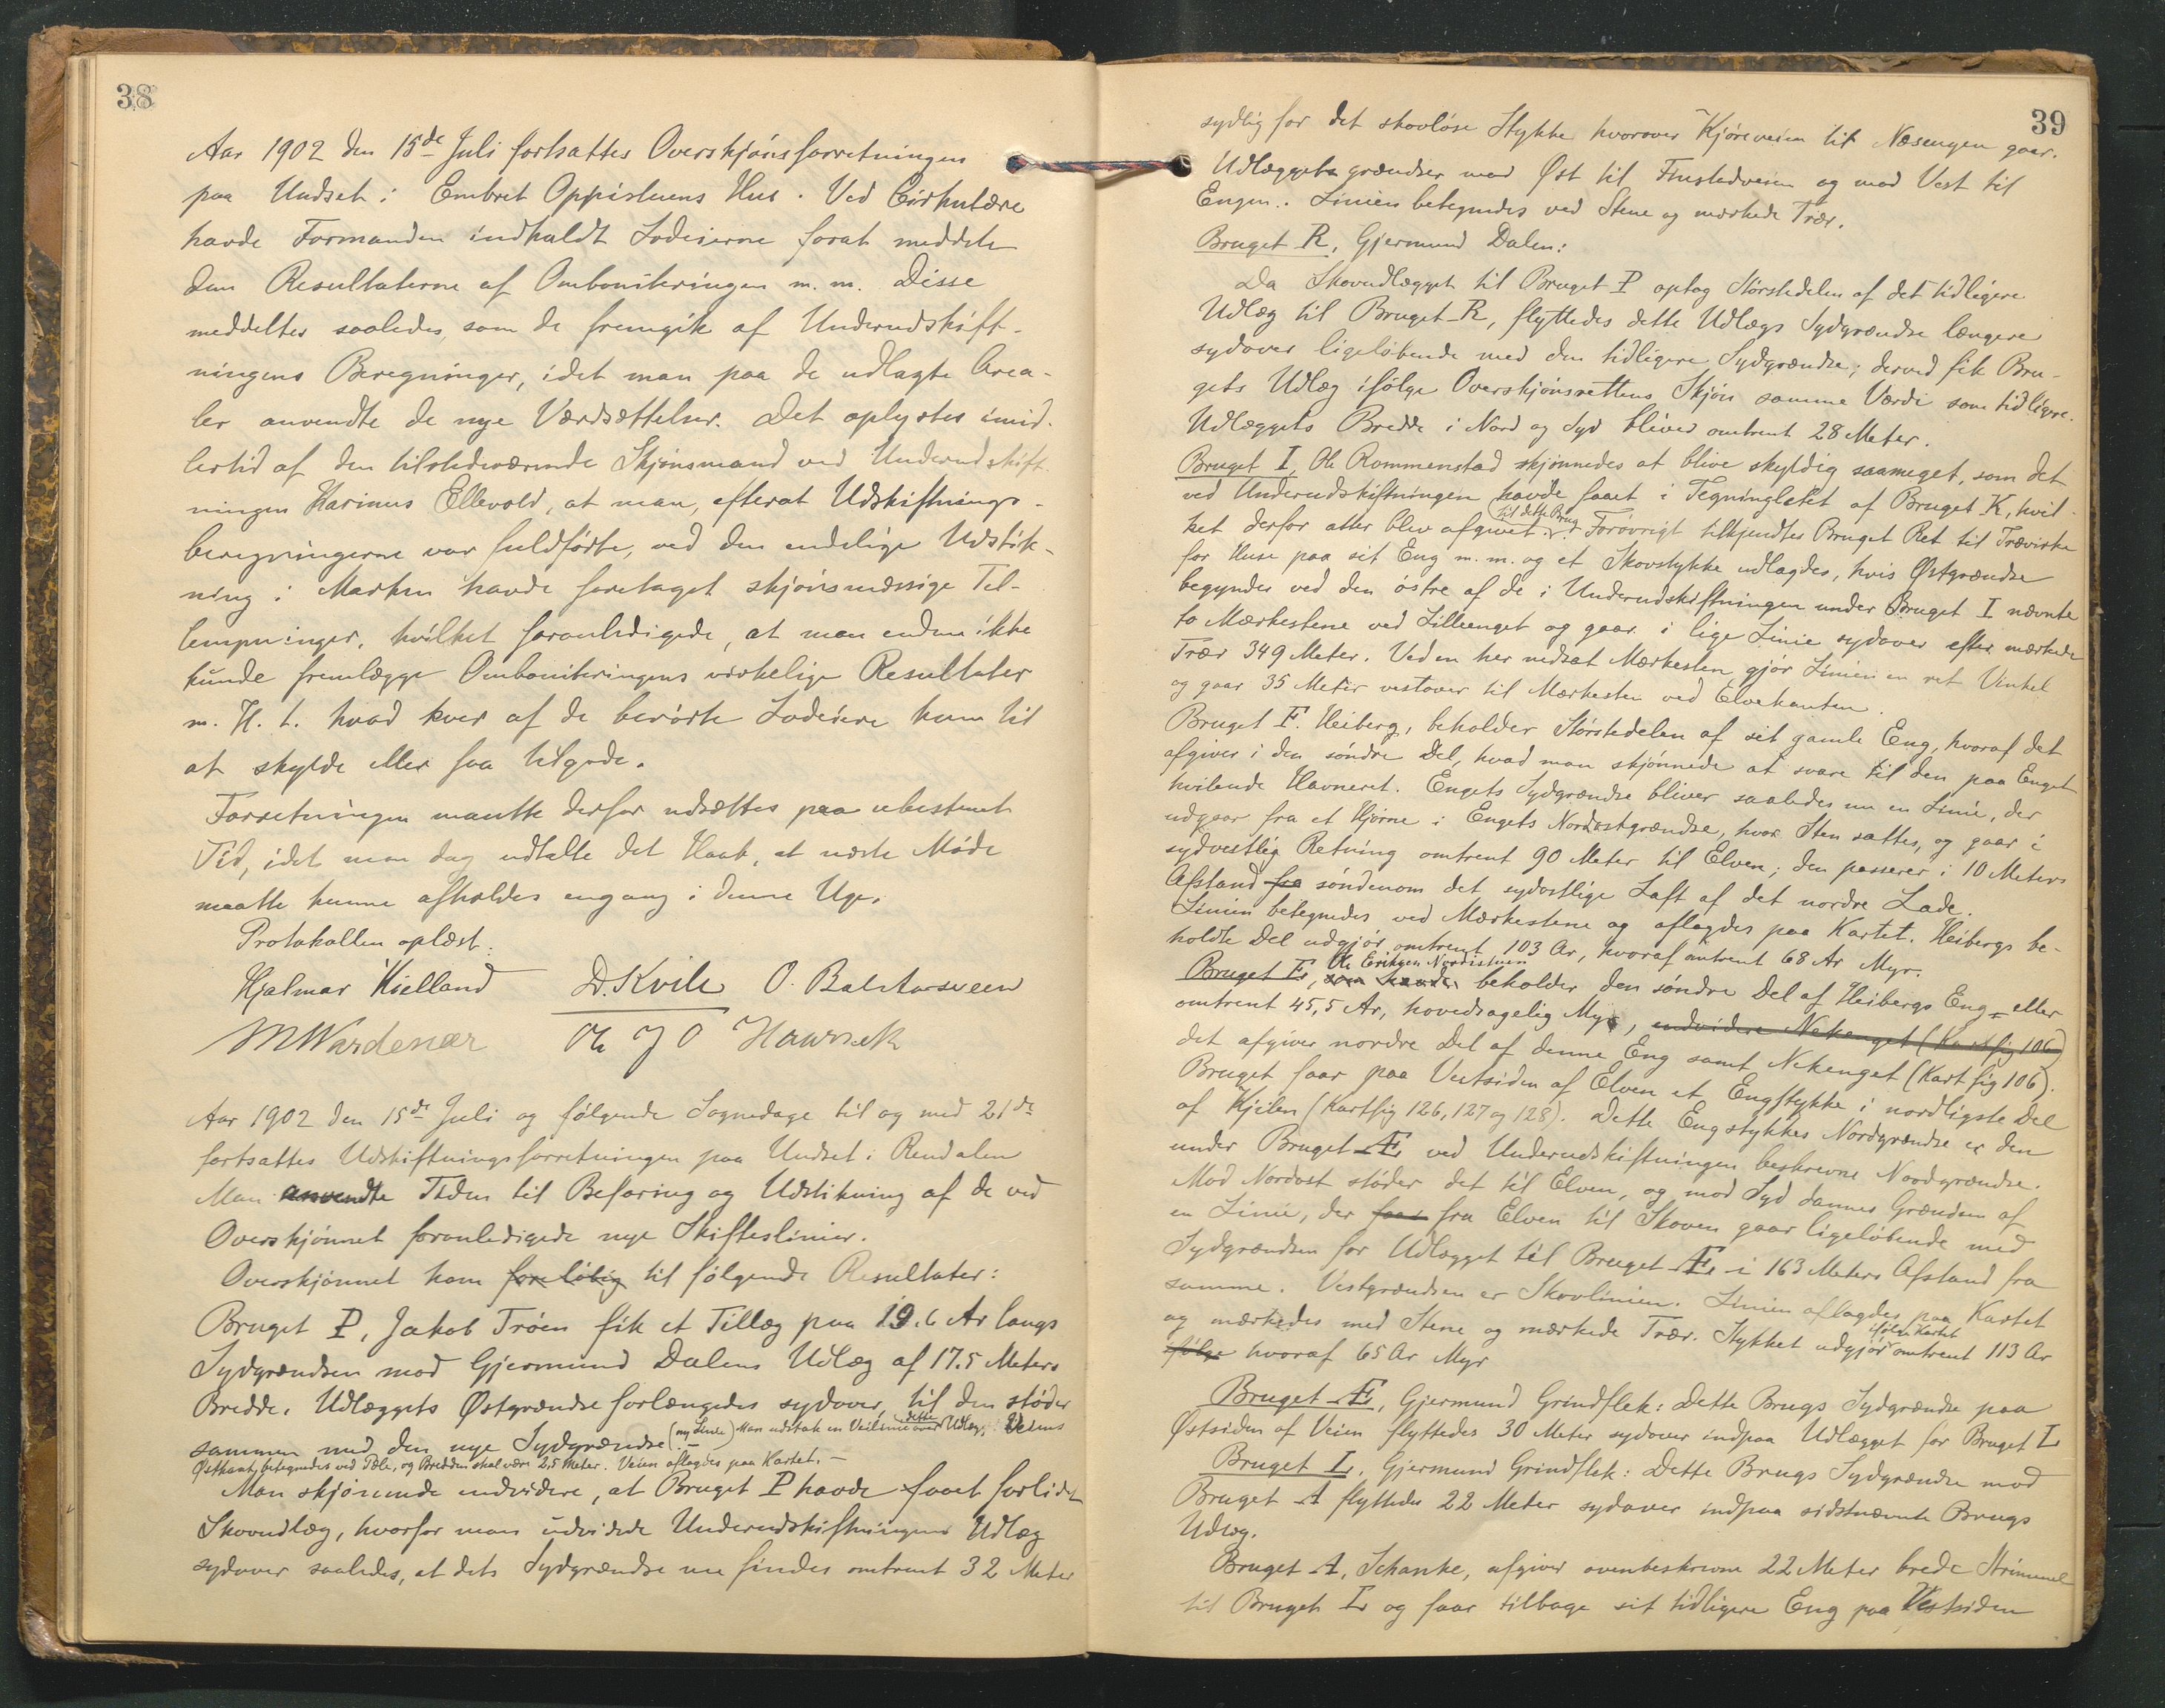 38
Aar 1902 den 15de Juli fortsattes Overskjönsforretningen
paa Undset i Embret Oppistuens Hus. Ved Cirkulære
havde Formanden indkaldt Lodeierne forat meddele
dem Resultaterne af Omboniteringen m. m. Disse
meddeltes saaledes, som de fremgik af Underudskift-
ningens Beregninger, idet man paa de udlagte Area-
ler anvendte de nye Værdsættelser. Det oplystes imid-
lertid af den tilstedeværende Skjönsmand ved Underudskift-
ningen Karinus Ellevold, at man, efterat Udskiftnings-
beregningerne var fuldförte, ved den endelige Udstik-
ning i Marken havde foretaget skjönsmæssige Til-
lempninger, hvilket foranledigede, at man endnu ikke
kunde fremlægge Omboniteringens virkelige Resultater
m. H. t. hvad hver af de berörte Lodeiere kom til
at skylde eller faa tilgode.
Forretningen maatte derfor udsættes paa ubestemt
Tid, idet man dog udtalte det Haab, at næste Möde
maatte kunne afholdes engang i denne Uge.
Protokollen oplæst.
Hjalmar Kielland D. Kvile O. Balstarsveen
M Wardenær
Aar 1902 den 15de Juli og fölgende Sognedage til og med 21de
fortsattes Udskiftningsforretningen paa Undset i Rendalen
Man anvendte Tiden til Befaring og Udstikning af de ved
Overskjönnet foranledigede nye Skifteslinier.
Overskjönnet kom forelöbig til fölgende Resultater:
Bruget P, Jakob Tröen fik et Tillæg paa 19.6 Ar langs
Sydgrændsen mod Gjermund Dalens Udlæg af 17.5 Meters
Bredde. Udlæggets Østgrændse forlængedes sydover, til den stöder
sammen med den nye Sydgrændse (ny Linie). - Man udstak en Veilinie over dette Udlæg, Veiens
Østkant betegnedes ved Pæle, og Bredden skal være 2,5 Meter. Veien aflagdes paa Kartet. -
Man skjönnede endvidere, at Bruget P havde faaet forlidet
Skovudlæg, hvorfor man udvidede Underudskiftningens Udlæg
sydover saaledes, at dets Sydgrændse nu findes omtrent 32 Meter
39
sydlig for det skovløse Stykke hvorover Kjöreveien til Næsengen gaar.
Udlægget grændser mod Øst til Finstadveien og mod Vest til
Engen. Linien betegnedes ved Stene og mærkede Trær.
Bruget R, Gjermund Dalen:
Da Skovudlægget til Bruget P optog Störstedelen af det tidligere
Udlæg til Bruget R, flyttedes dette Udlægs Sydgrændse længere
sydover ligelöbende med den tidligere Sydgrændse; derved fik Bru-
gets Udlæg ifölge Overskjönsrettens Skjön samme Værdi som tidligere.
Udlæggets Bredde i Nord og Syd bliver omtrent 28 Meter.
Bruget I, Ole Rommenstad skjönnedes at blive skyldig saameget, som det
ved Underudskiftningen havde faaet i Tegningfeltet af Bruget K, hvil-
ket derfor atter blev afgivet til dette Brug. Forövrigt tilkjendtes Bruget Ret til Trævirke
for Huse paa sit Eng m. m. og et Skovstykke udlagdes, hvis Østgrændse
begynder ved den östre af de i Underudskiftningen under Bruget I nævnte
to Mærkestene ved Lilleenget og gaar i lige Linie sydover efter mærkede
Trær 349 Meter. Ved en her nedsat Mærkesten gjör Linien en ret Vinkel
og gaar 35 Meter vestover til Mærkesten ved Elvekanten.
Bruget F. Heiberg, beholder Störstedelen af sit gamle Eng, hvoraf det
afgiver i den söndre Del, hvad man skjönnede at svare til den paa Enget
hvilende Havneret. Engets Sydgrændse bliver saaledes nu en Linie, der
udgaar fra et Hjörne i Engets Nordostgrændse, hvor Sten sattes, og gaar i
sydvestlig Retning omtrent 90 Meter til Elven; den passerer i 10 Meters
Afstand fra söndenom det sydostlige Laft af det nordre Lade.
Linien betegnedes ved Mærkestene og aflagdes paa Kartet. Heibergs be-
holdte Del udgjör omtrent 103 Ar, hvoraf omtrent 68 Ar Myr.
Bruget E, Ole Eriksen Nordistuen beholder den söndre Del af Heibergs Eng - eller
omtrent 45,5 Ar, hovedsagelig Myr, endvidere Nekenget (Kartfig 106)
det afgiver nordre Del af denne Eng samt Nekenget (Kart fig 106).
Bruget faar paa Vestsiden af Elven et Engstykke i nordligste Del
af Kjilen (Kartfig 126, 127 og 128). Dette Engstykkes Nordgrændse er den
under Bruget Æ ved Underudskiftningen beskrevne Nordgrændse.
Mod Nordost stöder det til Elven, og mod Syd dannes Grændsen af
en Linie, der faar fra Elven til Skoven gaar ligelöbende med
Sydgrændsen for Udlægget til Bruget Æ i 163 Meters Afstand fra
samme. Vestgrændsen er Skovlinien. Linien aflagdes paa Kartet
og mærkedes med Stene og mærkede Trær. Stykket udgjör ifölge Kartet omtrent 113 Ar
ifölge hvoraf 65 Ar Myr
Bruget Æ, Gjermund Grindflek: Dette Brugs Sydgrændse paa
Østsiden af Veien flyttedes 30 Meter sydover indpaa Udlægget for Bruget L
Bruget L, Gjermund Grindflek: Dette Brugs Sydgrændse mod
Bruget A flyttedes 22 Meter sydover indpaa sidstnævnte Brugs
Udlæg.
Bruget A, Schanke, afgiver ovenbeskrevne 22 Meter brede Strimmel
til Bruget L og faar tilbage sit tidligere Eng paa Vestsiden